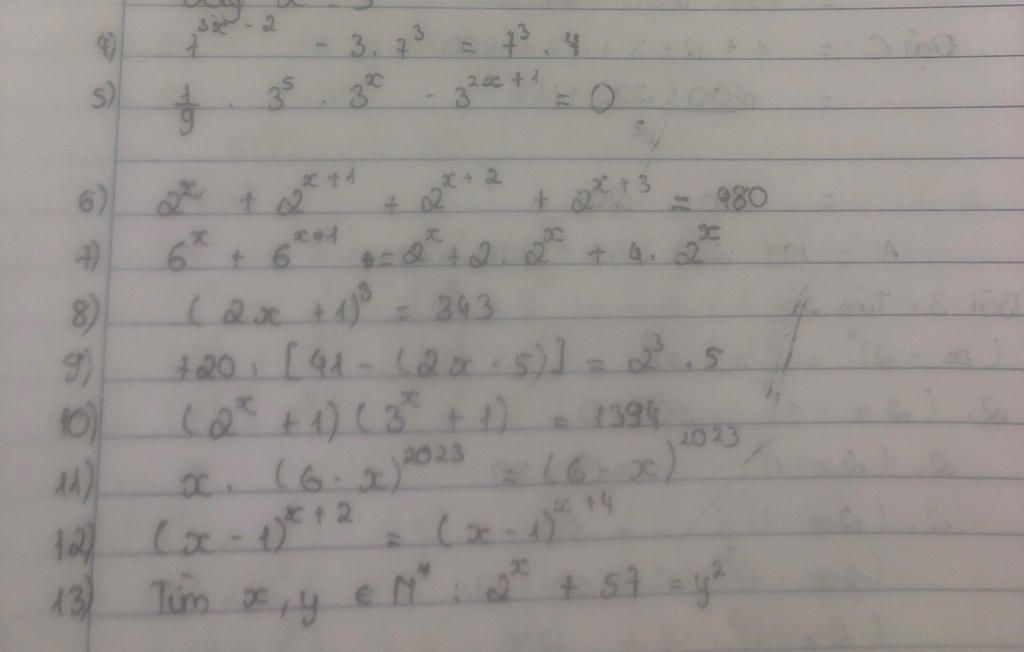 4) 7^{3x-2} - 3. 7^3 = 7^3 . 4
5) \frac{1}{9} . 3^5 . 3^x - 3^{2x+1} = 0
6) 2^x + 2^{x+1} + 2^{x+2} + 2^{x+3} = 480
7) 6^x + 6^{x+1} = 2^x + 2. 2^x + 4. 2^x
8) (2x + 1)^3 = 343
9) 720 : [41 - (2x - 5)] = 2^3 . 5
10) (2^x + 1) (3^x + 1) = 1394
11) x. (6 - x)^{2023} = (6 - x)^{2023}
12) (x - 1)^{x+2} = (x - 1)^{x+4}
13) Tìm x, y ∈ N* : 2^x + 57 = y^2